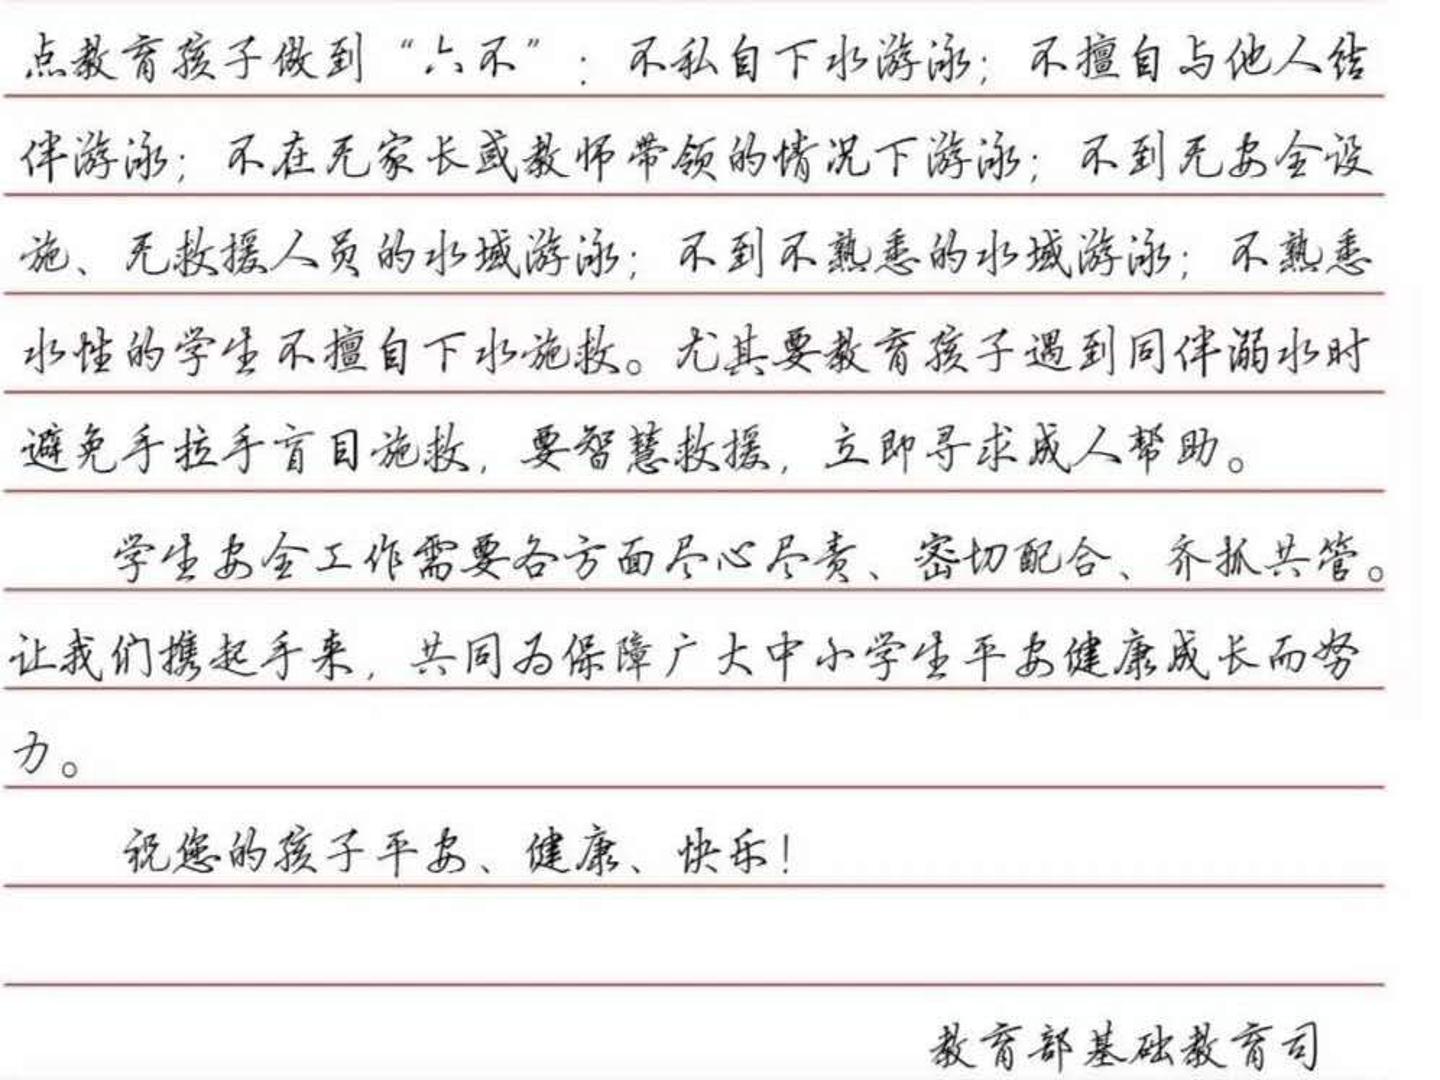 点教育孩子做到“六不”：不私自下水游泳；不擅自与他人结
伴游泳；不在无家长或教师带领的情况下游泳；不到无安全设
施、无救援人员的水域游泳；不到不熟悉的水域游泳；不熟悉
水性的学生不擅自下水施救。尤其要教育孩子遇到同伴溺水时
避免手拉手盲目施救，要智慧救援，立即寻求成人帮助。
学生安全工作需要各方面尽心尽责、密切配合、齐抓共管。
让我们携起手来，共同为保障广大中小学生平安健康成长而努
力。
祝您的孩子平安、健康、快乐！
教育部基础教育司